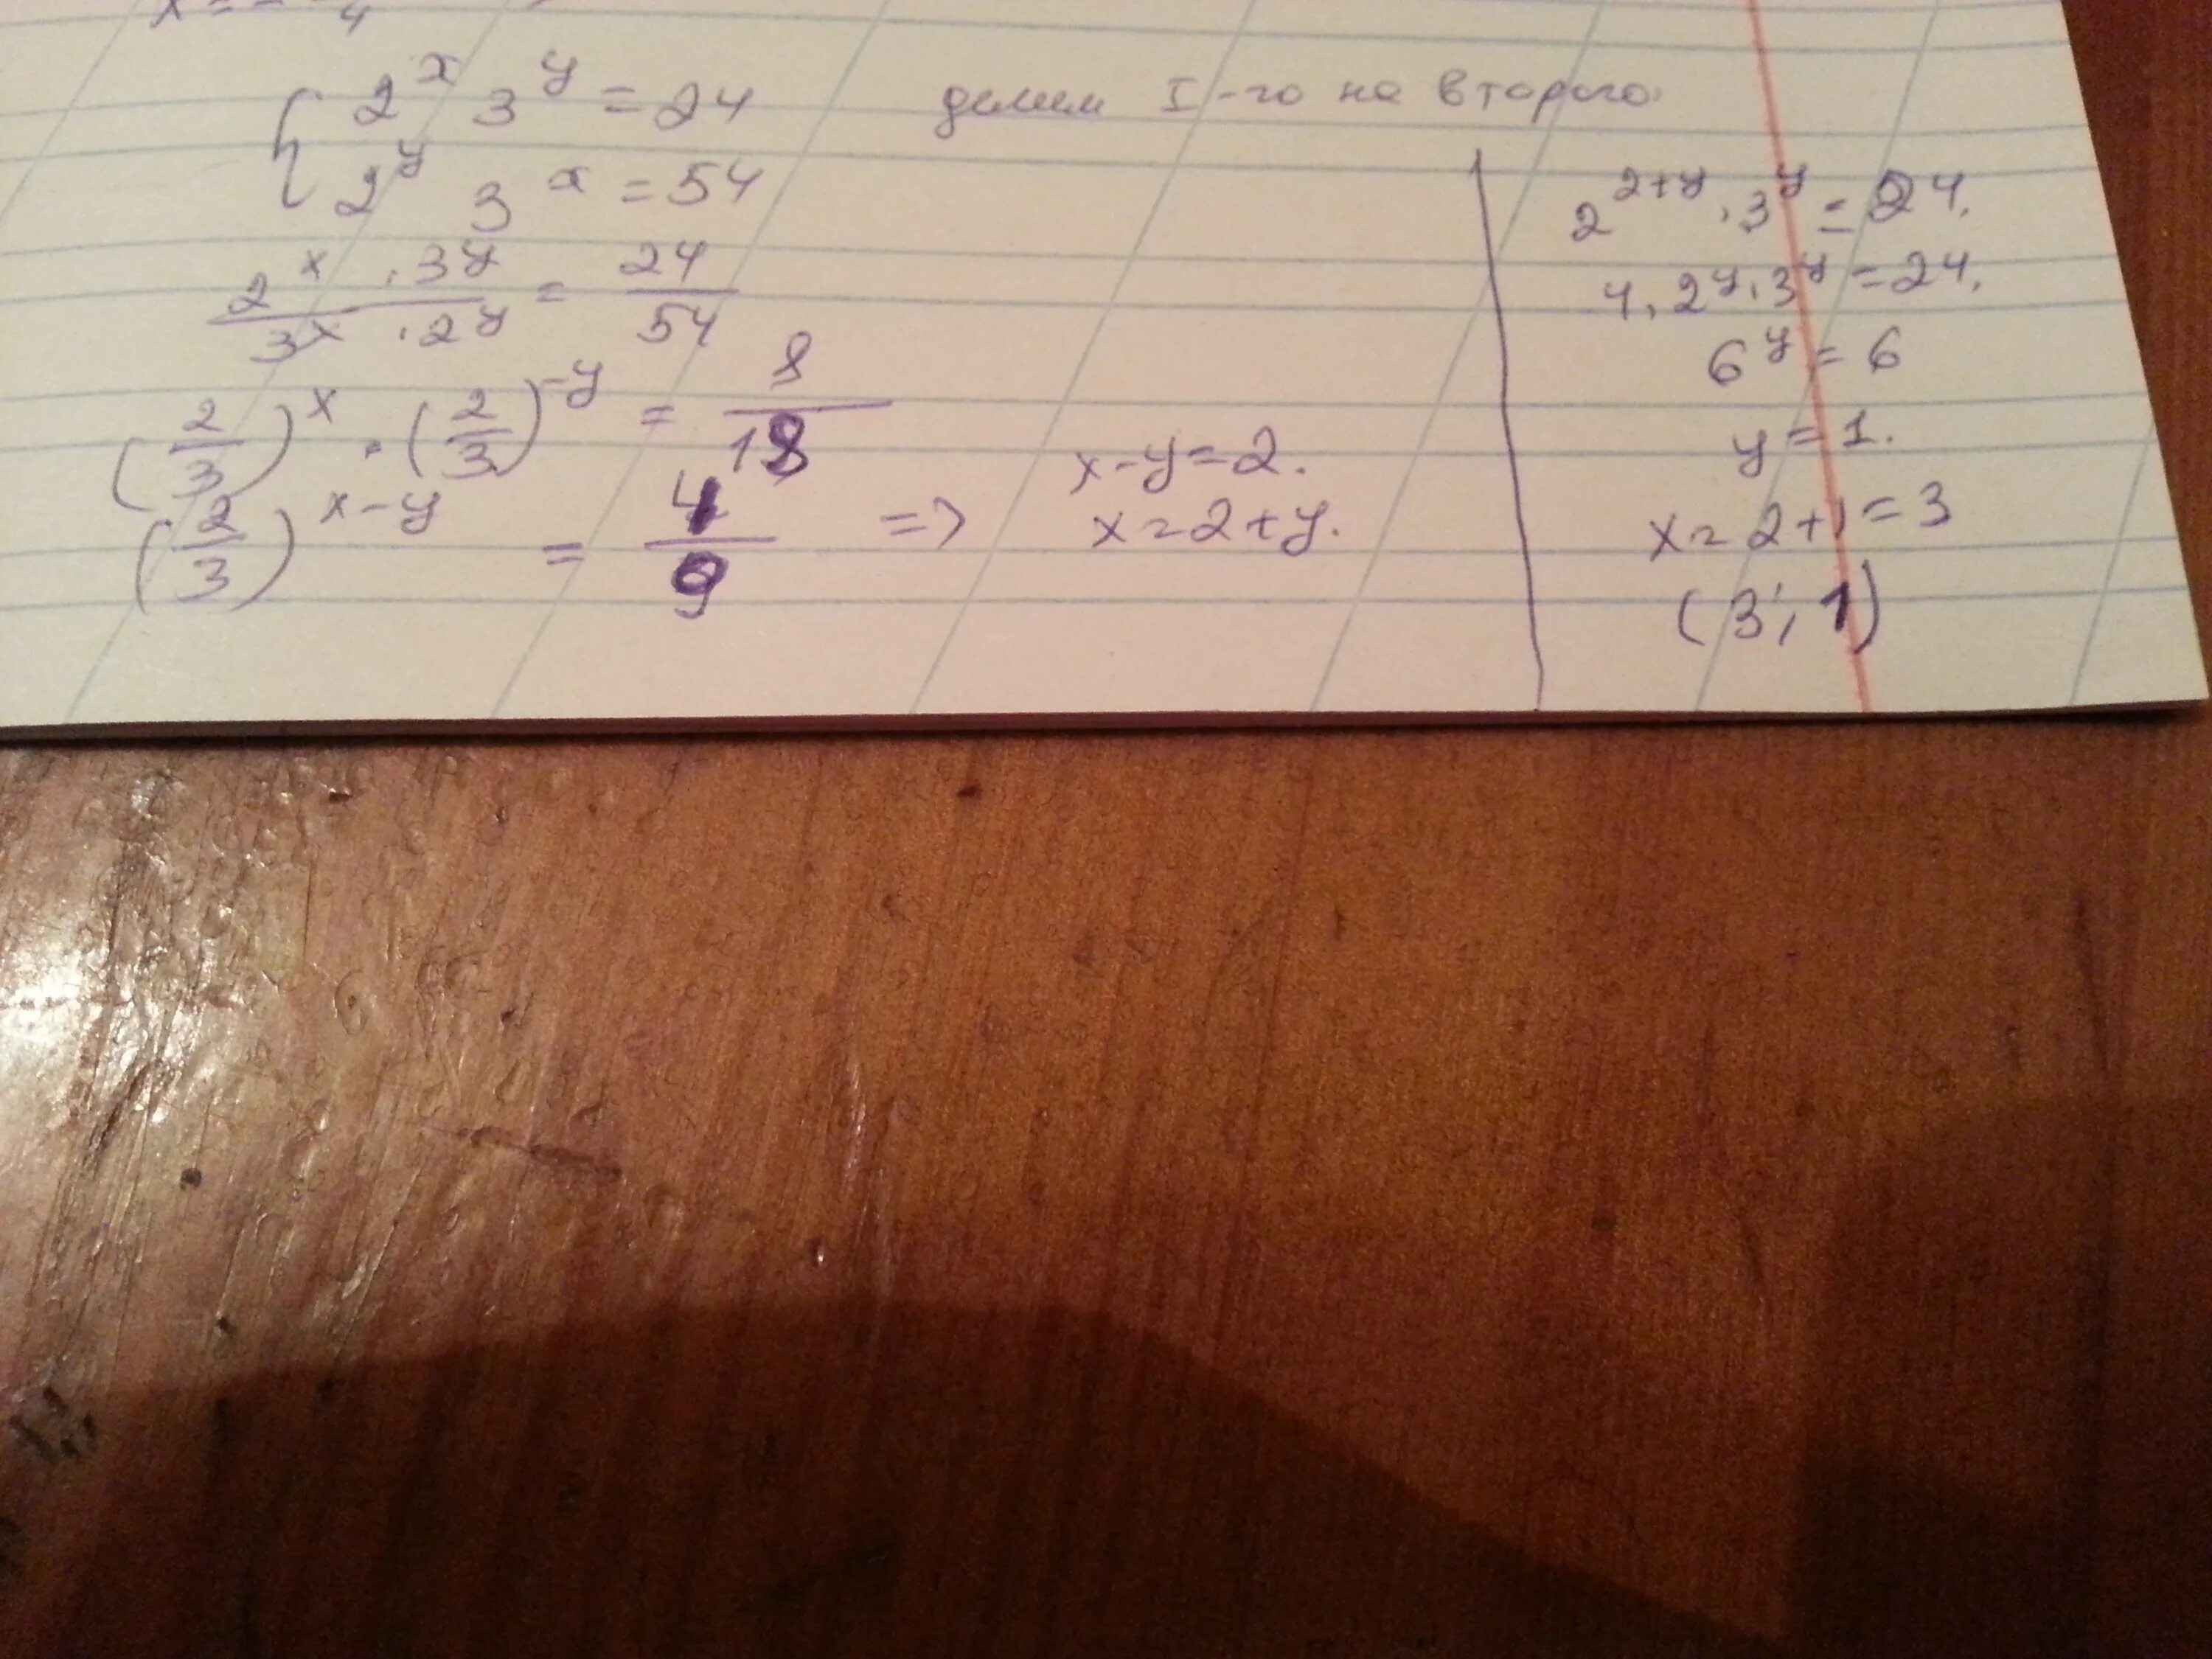 x = -
4
{ 2^x 3^y = 24 делим I-го на второго.
2^y 3^x = 54
2^x · 3^y / 3^x · 2^y = 24 / 54
(2/3)^x · (2/3)^-y = 8 / 18
(2/3)^x-y = 4 / 9 =>
x-y=2.
x=2+y.
2^2+y · 3^y = 24.
4 · 2^y · 3^y = 24.
6^y = 6
y = 1.
x = 2+1 = 3
(3; 1)